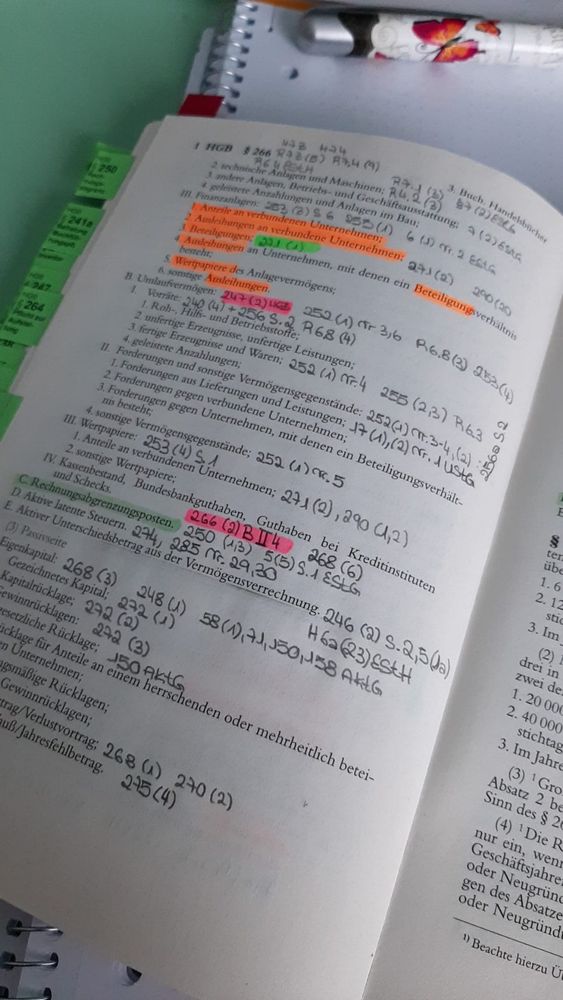 1 HGB § 266
H7.3 H7.4
R7.3 (5) R7.4 (9)
R6.4 EStH
R7.1 (3)
3. Buch. Handelsbücher
2. technische Anlagen und Maschinen; R4.2 (3)
3. andere Anlagen, Betriebs- und Geschäftsausstattung;
4. geleistete Anzahlungen und Anlagen im Bau; 7 (2) EStG
III. Finanzanlagen: 253 (3) S. 6 255 (1) 6 (1) Nr. 2 EStG
1. Anteile an verbundenen Unternehmen;
2. Ausleihungen an verbundene Unternehmen;
3. Beteiligungen; 271 (1) 271 (2)
4. Ausleihungen an Unternehmen, mit denen ein Beteiligungsverhältnis
besteht;
5. Wertpapiere des Anlagevermögens;
6. sonstige Ausleihungen.
B. Umlaufvermögen: 247 (2) HGB 252 (1) Nr. 3,6 R6.8 (3) 253 (4)
I. Vorräte: 240 (4) + 256 S. 2 R6.8 (4)
1. Roh-, Hilfs- und Betriebsstoffe;
2. unfertige Erzeugnisse, unfertige Leistungen;
3. fertige Erzeugnisse und Waren; 252 (1) Nr. 4 255 (2,3) R6.3
4. geleistete Anzahlungen;
II. Forderungen und sonstige Vermögensgegenstände: 252 (1) Nr. 3-4, (2)
1. Forderungen aus Lieferungen und Leistungen; 17 (1), (2) Nr. 1 UStG
2. Forderungen gegen verbundene Unternehmen;
3. Forderungen gegen Unternehmen, mit denen ein Beteiligungsverhält-
nis besteht;
4. sonstige Vermögensgegenstände; 252 (1) Nr. 5
III. Wertpapiere: 253 (4) S. 1
1. Anteile an verbundenen Unternehmen; 271 (2), 290 (1,2)
2. sonstige Wertpapiere;
IV. Kassenbestand, Bundesbankguthaben, Guthaben bei Kreditinstituten
und Schecks. 266 (2) B II 4 268 (6)
C. Rechnungsabgrenzungsposten. 250 (1,3) 5 (5) S. 1 EStG
D. Aktive latente Steuern. 274, 285 Nr. 29, 30
E. Aktiver Unterschiedsbetrag aus der Vermögensverrechnung. 246 (2) S. 2,5 (1a)
(3) Passivseite
Eigenkapital: 268 (3)
Gezeichnetes Kapital; 248 (1)
Kapitalrücklage; 272 (1) 58 (1), 71, 150, 158 AktG
Gewinnrücklagen: 272 (2)
gesetzliche Rücklage; 272 (3)
150 AktG
Rücklage für Anteile an einem herrschenden oder mehrheitlich betei-
ten Unternehmen;
satzungsmäßige Rücklagen;
Gewinnrücklagen;
vortrag/Verlustvortrag; 268 (1) 270 (2)
überschuß/Jahresfehlbetrag. 275 (4)
§ 250
§ 241a
§ 264
§
1. 6
2. 12
3. Im
(2)
drei in
zwei de
1. 20 000
2. 40 000
stichtag
3. Im Jahre
(3) ¹Gro
Absatz 2 be
Sinn des § 26
(4) ¹Die R
nur ein, wenn
Geschäftsjahre
oder Neugründ
gen des Absatze
oder Neugründ
¹) Beachte hierzu Üb